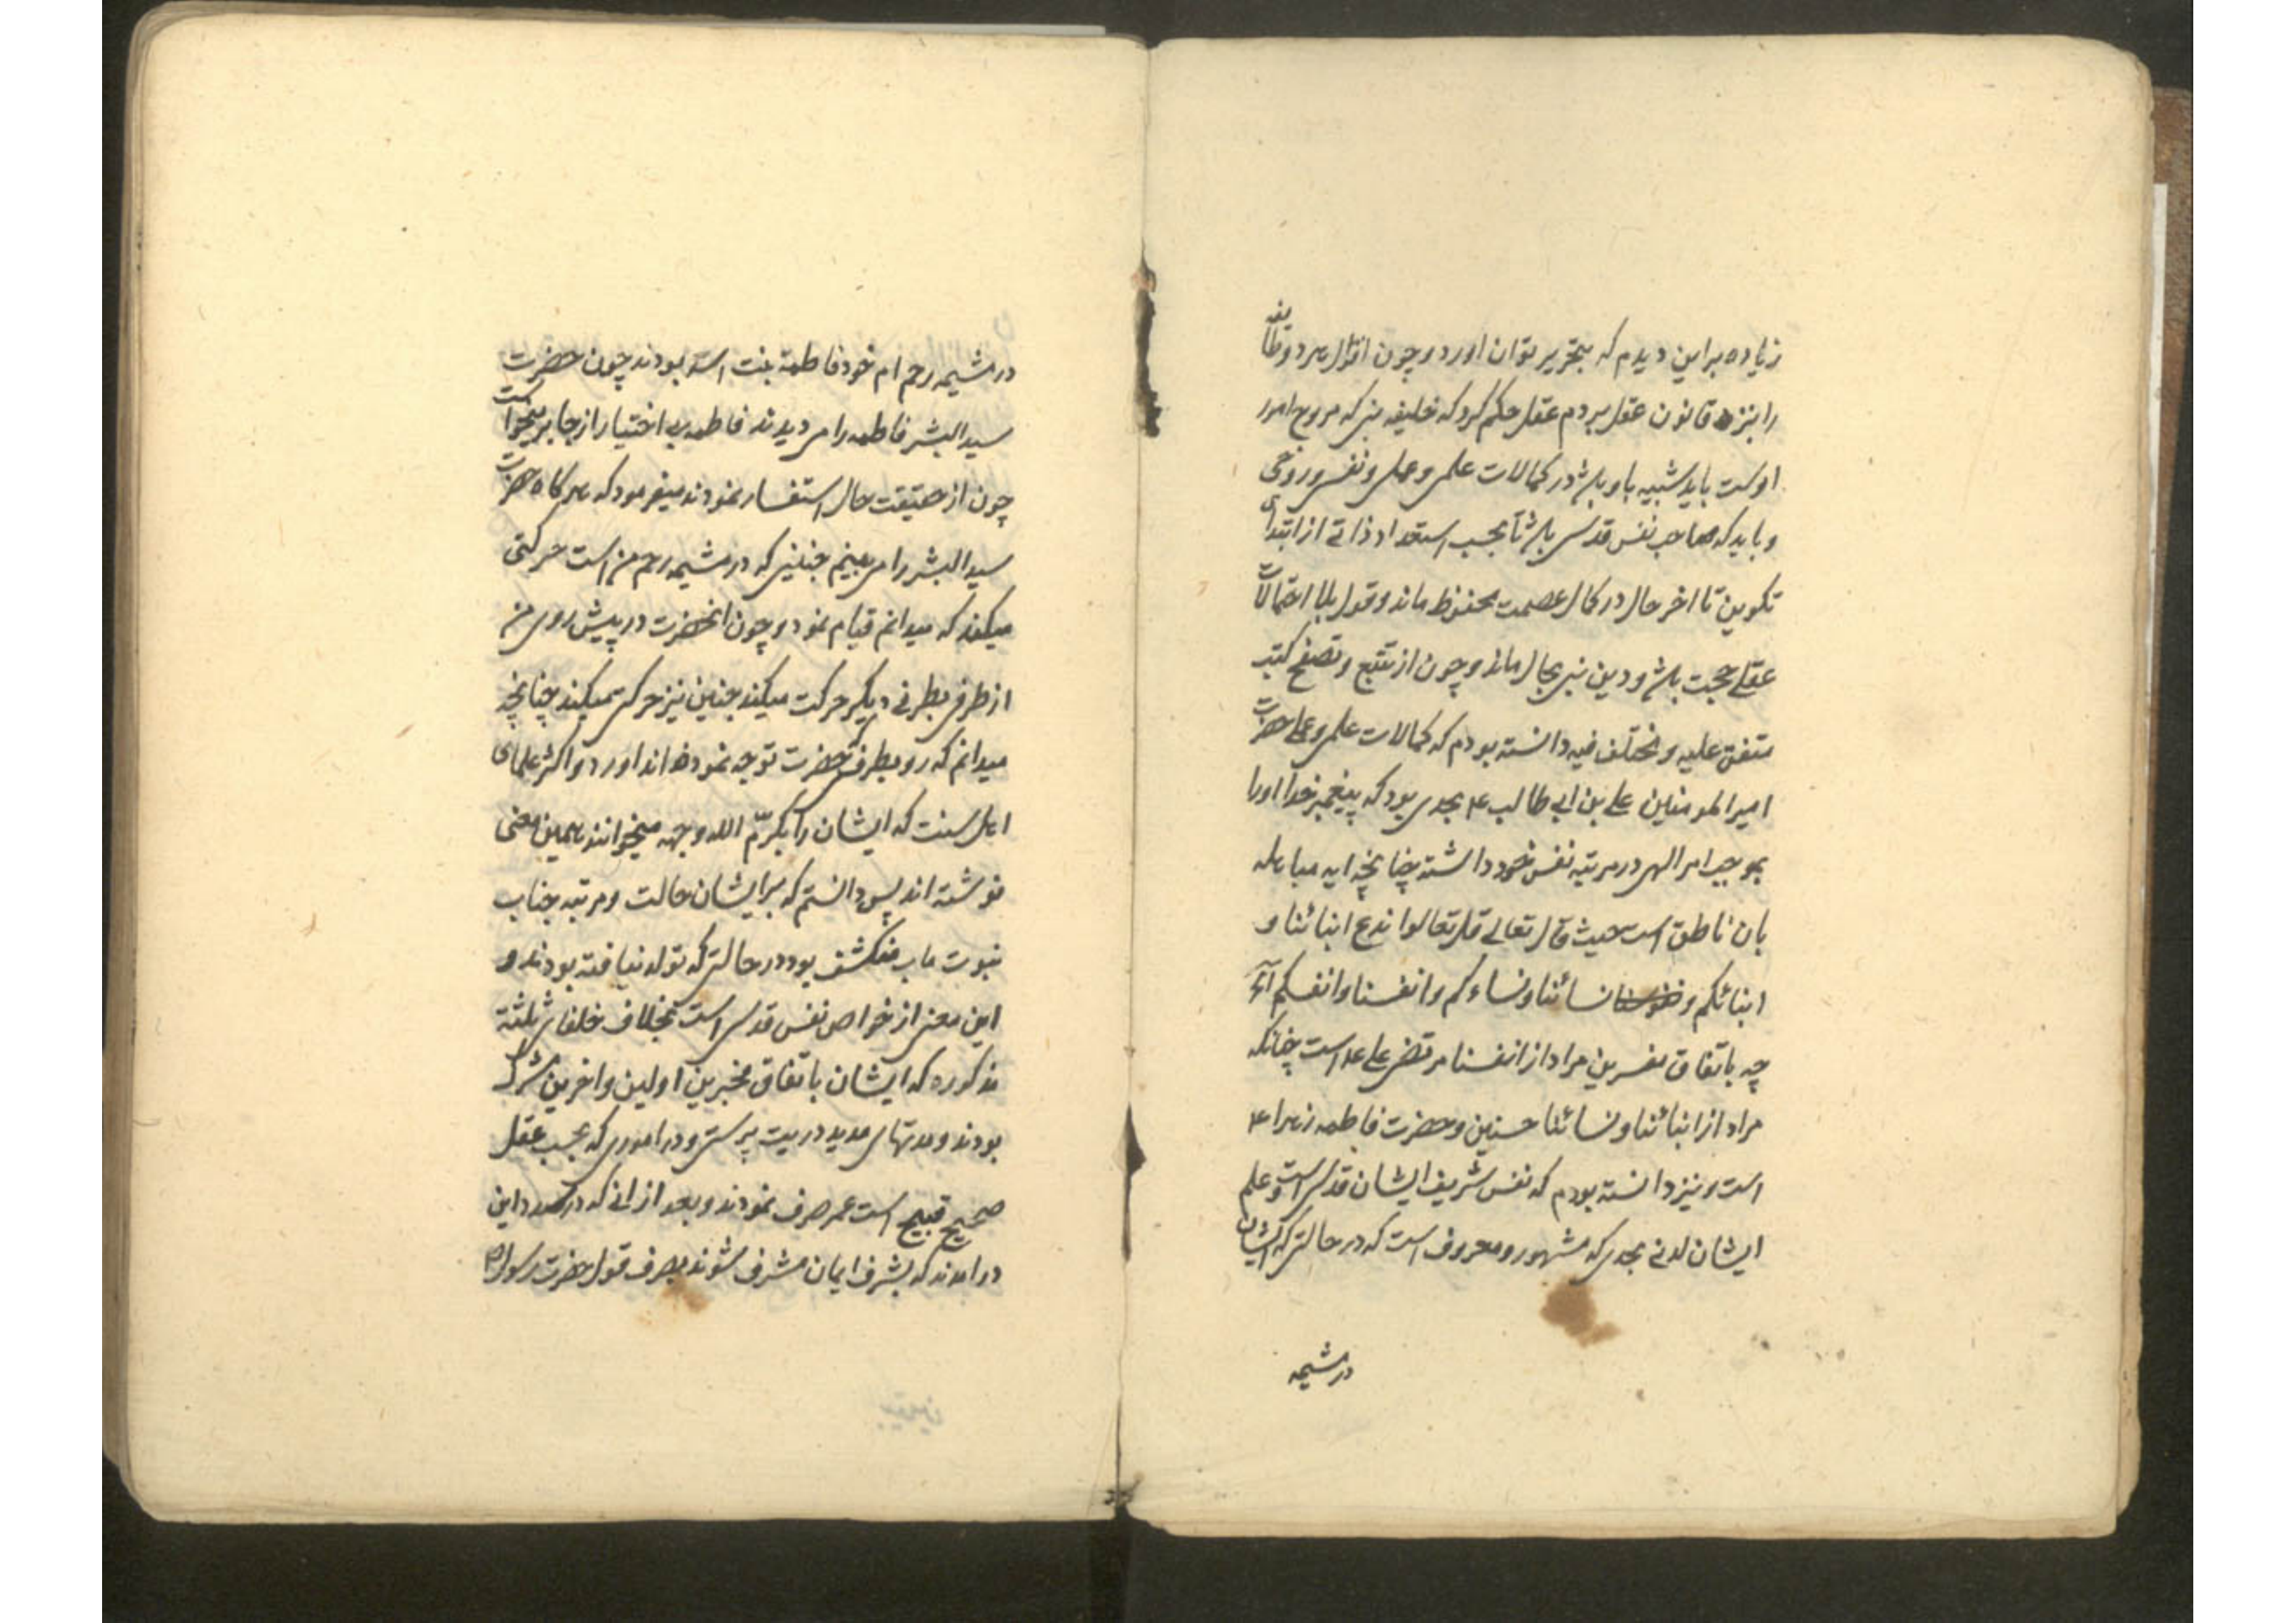 زیاده براین دیدم که بتحریر توان اورد و چون اقوال هر دو طائفه
را بنزد قانون عقل بردم عقل حکم کرد که خلیفه نبی که مروج امور
اوست باید شبیه باو باشد در کمالات علمی و عملی و نفسی و روحی
و باید که صاحب نفس قدسی باشد تا بحسب استعداد ذاتی از ابتدای
تکوین تا اخر حال در کمال عصمت محفوظ ماند و قول بلا احتمالات
عقلی حجت باشد و دین نبی بحال ماند و چون از تتبع و تصفح کتب
متفق علیه و مختلف فیه دانسته بودم که کمالات علمی و عملی حضرت
امیر المومنین علی بن ابی طالب ع بحدی بود که پیغمبر خدا او را
بموجب امر الهی در مرتبه نفس خود داشته چنانچه ایه مباهله
بان ناطق است حیث قال تعالی قل تعالوا ندع ابنائنا و
ابنائکم و نسائنا و نساءکم و انفسنا و انفسکم
چه باتفاق مفسرین مراد از انفسنا مرتضی علی ع است چنانکه
مراد از ابنائنا و نسائنا حسنین و حضرت فاطمه زهرا ع
است و نیز دانسته بودم که نفس شریف ایشان قدسی است و علم
ایشان لدنی بحدی که مشهور و معروف است که در حالتی که ایشان
در مشیمه
در مشیمه رحم ام خود فاطمه بنت اسد بودند چون حضرت
سید البشر فاطمه را می دیدند فاطمه بی اختیار از جا بر میخواست
چون از حقیقت حال استفسار نمودند میفرمود که هر کاه حضرت
سید البشر را می بینم جنینی که در مشیمه رحم من است حرکتی
میکند که میدانم قیام نمود و چون انحضرت در پیش روی من
از طرفی بطرفی دیگر حرکت میکند جنین نیز حرکتی میکند چنانچه
میدانم که رو بطرف حضرت توجه نموده اند و اکثر علمای
اهل سنت که ایشان را بکرّم الله وجهه میخوانند همین معنی
نوشته اند پس دانستم که بر ایشان حالت و مرتبه جناب
نبوت ماب منکشف بود در حالتی که تولد نیافته بودند و
این معنی از خواص نفس قدسی است بخلاف خلفای ثلثه
مذکوره که ایشان باتفاق مخبرین اولین و اخرین مشرک
بودند و مدتهای مدید در بت پرستی و در اموری که بحسب عقل
صحیح قبیح است عمر صرف نمودند و بعد از انی که در صدد این
در امدند که بشرف ایمان مشرف شوند بصرف قول حضرت رسول ص